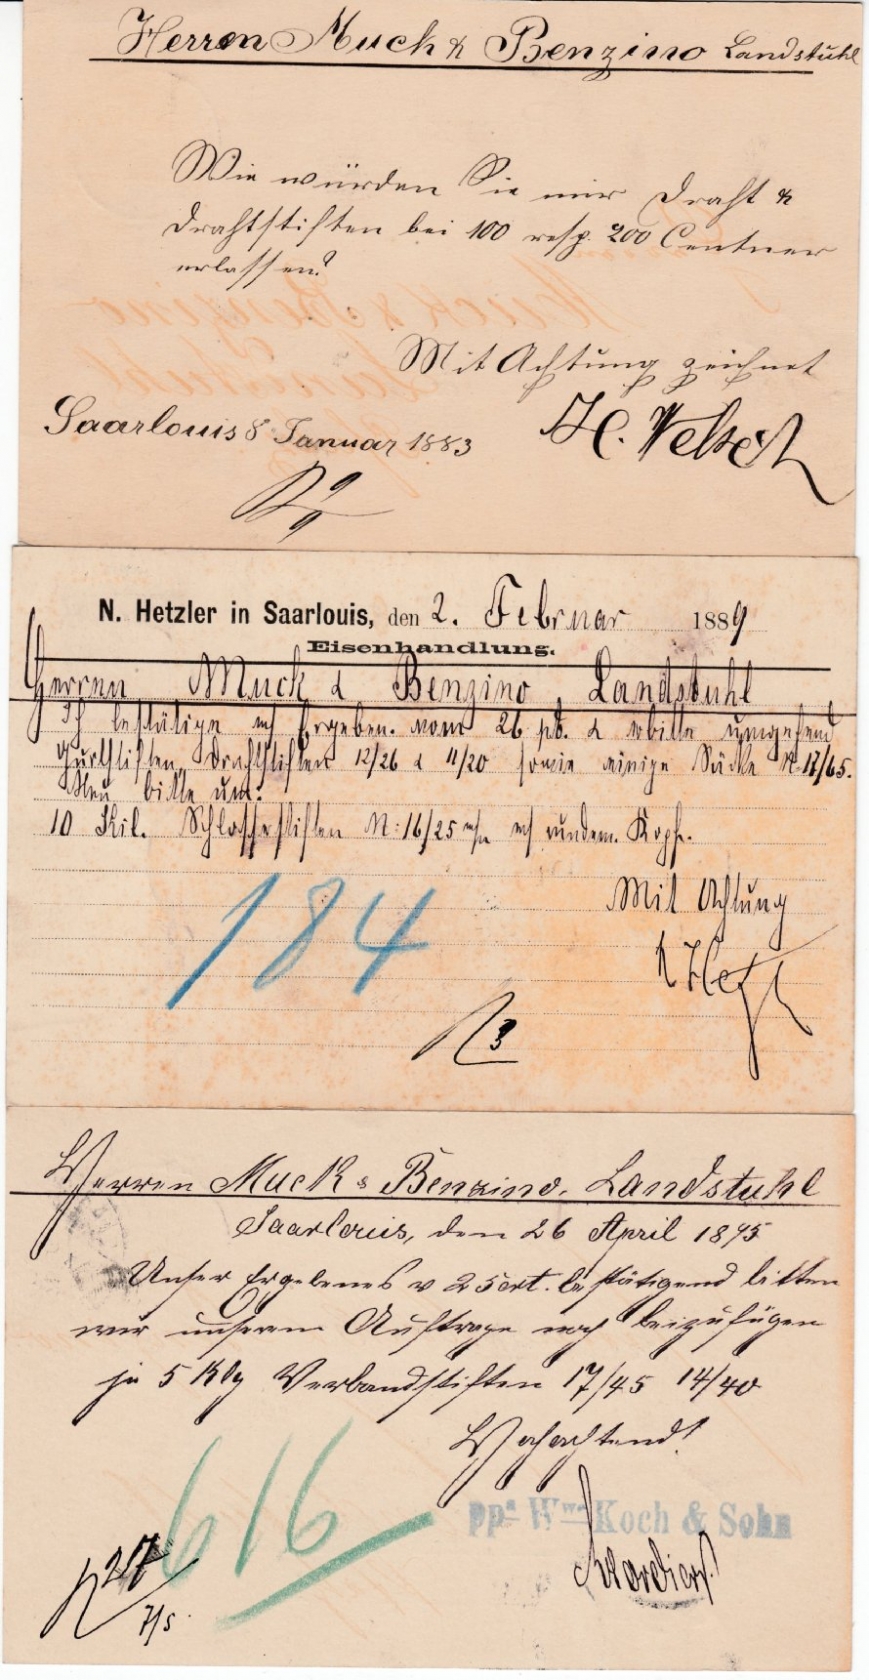 Herren Muck & Benzino Landstuhl
Wie würden Sie mir Draht &
Drahtstiften bei 100 resp. 200 Centner
erlassen?
Mit Achtung zeichnet
Saarlouis 8 Januar 1883
N. Hetzler in Saarlouis, den 2. Februar 1889
Eisenhandlung.
Herren Muck & Benzino, Landstuhl
Ich bestätige Ergeben. vom 26 pt. & erbitte umgehend
Gurtstiften, Drahtstiften 12/26 & 11/20 sowie einige Säcke N. 17/65.
Neu bitte um:
10 Kil. Schloßstiften N: 16/25 rundem Kopf.
184
Mit Achtung
Herren Muck & Benzino. Landstuhl
Saarlouis, den 26 April 1895
Unser Ergebenes v 25 crt. bestätigend bitten
wir unserem Auftrage noch beizufügen
je 5 Klg Verbandstiften 17/45 14/40
Hochachtend!
616
ppa Wwe Koch & Sohn
27
7/5